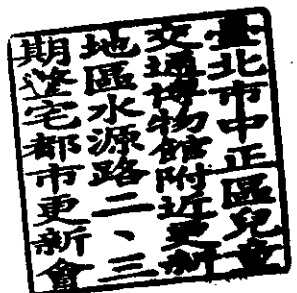 臺北市中正區兒童
交通博物館附近更新
地區水源路二、三
期整宅都市更新會